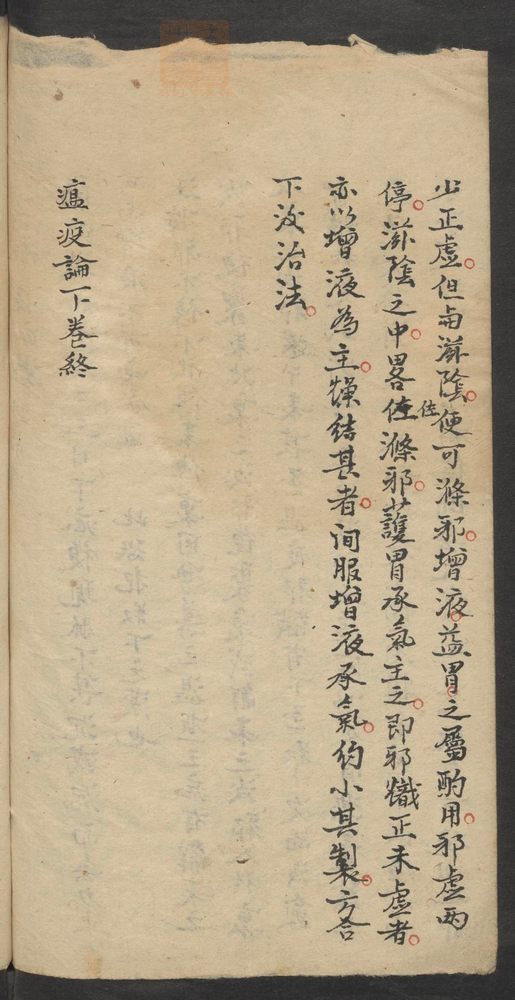 少正虛但与滋陰便可滌邪增液益胃之屬酌用邪虛兩
停滋陰之中畧佐滌邪護胃承氣主之即邪熾正未虛者
佐
亦以增液為主燥結甚者间服增液承氣約小其製方合
下後治法
瘟疫論下卷終